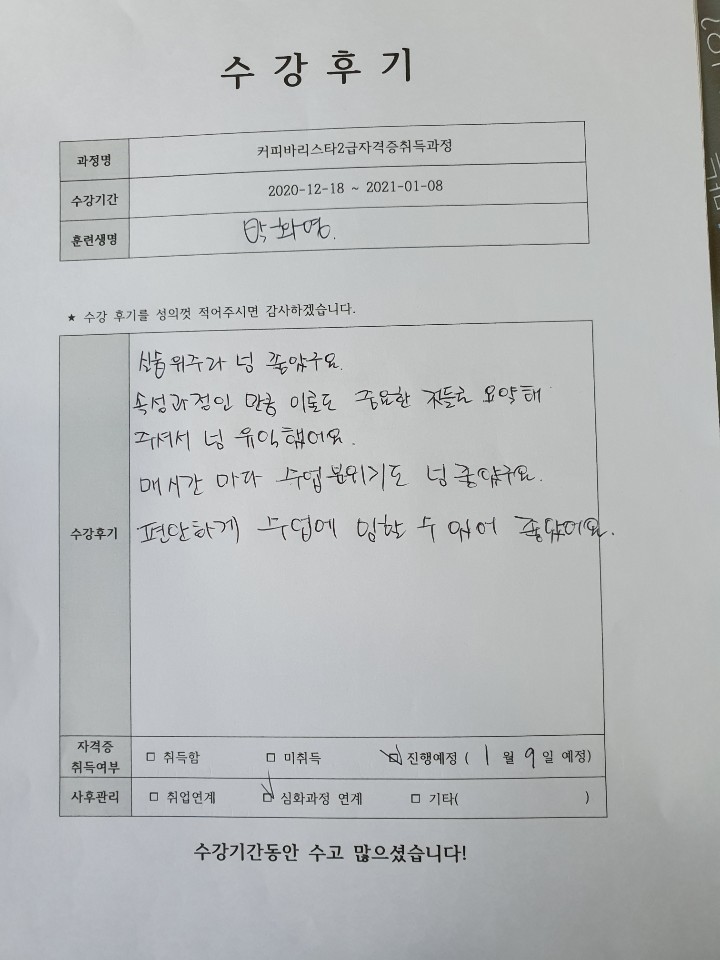 수강후기
과정명 커피바리스타2급자격증취득과정
수강기간 2020-12-18 ~ 2021-01-08
훈련생명 박화영.
★ 수강 후기를 성의껏 적어주시면 감사하겠습니다.
수강후기
실습위주라 넘 좋았구요.
속성과정인 만큼 이론도 중요한 것들로 요약해
주셔서 넘 유익했어요.
매시간 마다 수업분위기도 넘 좋았구요.
편안하게 수업에 임할 수 있어 좋았어요.
자격증 취득여부 □ 취득함 □ 미취득 ☑ 진행예정 ( 1 월 9 일 예정)
사후관리 □ 취업연계 ☑ 심화과정 연계 □ 기타( )
수강기간동안 수고 많으셨습니다!